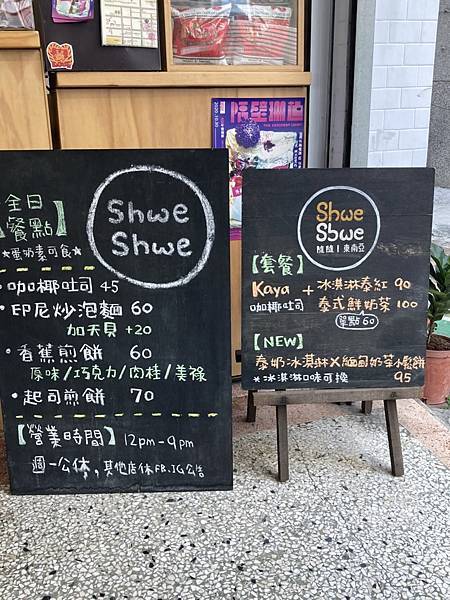 全日
餐點】
★蛋奶素可食★
Shwe
Shwe
・咖椰吐司 45
・印尼炒泡麵 60
加天貝 +20
・香蕉煎餅 60
原味/巧克力/肉桂/美祿
・起司煎餅 70
【營業時間】12pm-9pm
週一公休，其他店休FB.IG公告
隔壁珈琲
Shwe
Shwe
隨隨|東南亞
【套餐】
Kaya + 冰淇淋泰紅 90
咖椰吐司 泰式鮮奶茶 100
單點 60
【NEW】
泰奶冰淇淋X緬甸奶茶小鬆餅
*冰淇淋口味可換 95